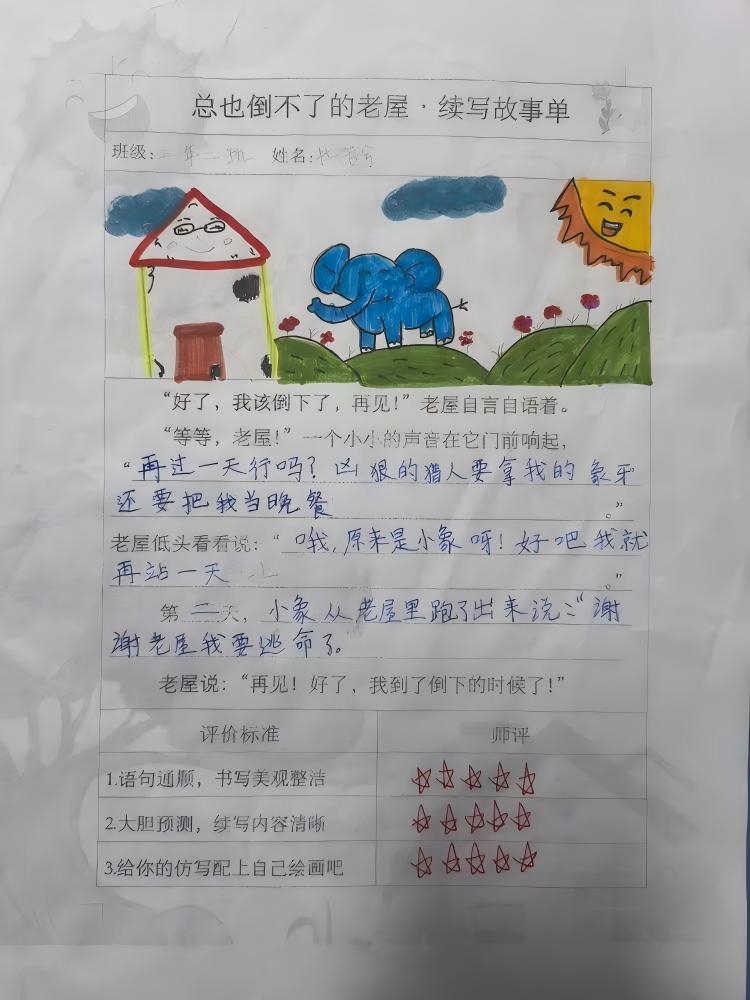 总也倒不了的老屋·续写故事单
班级：二年二班 姓名：
“好了，我该倒下了，再见！”老屋自言自语着。
“等等，老屋！”一个小小的声音在它门前响起，
“再过一天行吗？凶狠的猎人要拿我的象牙
还要把我当晚餐。”
老屋低头看看说：“哦，原来是小象呀！好吧我就
再站一天。”
第二天，小象从老屋里跑了出来说：“谢
谢老屋我要逃命了。
老屋说：“再见！好了，我到了倒下的时候了！”
评价标准 师评
1.语句通顺，书写美观整洁
2.大胆预测，续写内容清晰
3.给你的仿写配上自己绘画吧